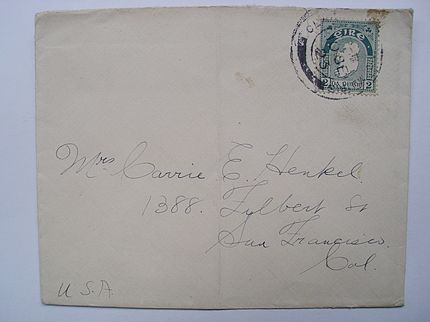 ÉIRE
2 2
Mrs Carrie E. Henkel
1388. Fylbert St
San Francisco.
Cal.
U.S.A.